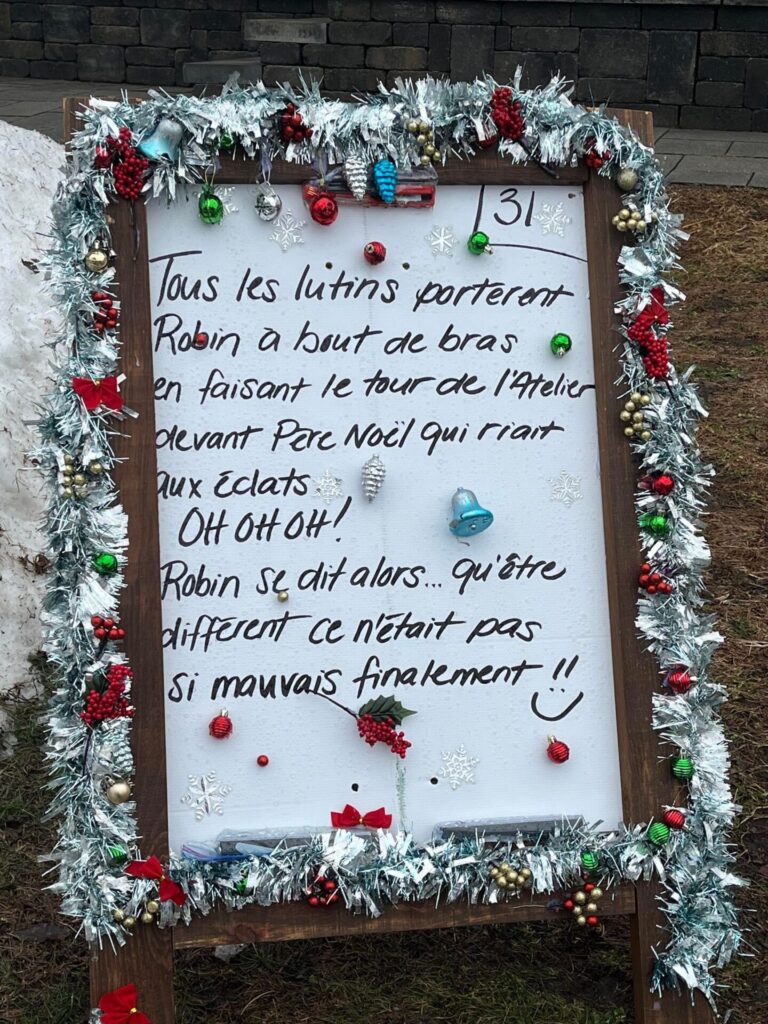 31
Tous les lutins portèrent
Robin à bout de bras
en faisant le tour de l'Atelier
devant Père Noël qui riait
aux éclats
OH OH OH!
Robin se dit alors... qu'être
différent ce n'était pas
si mauvais finalement!!